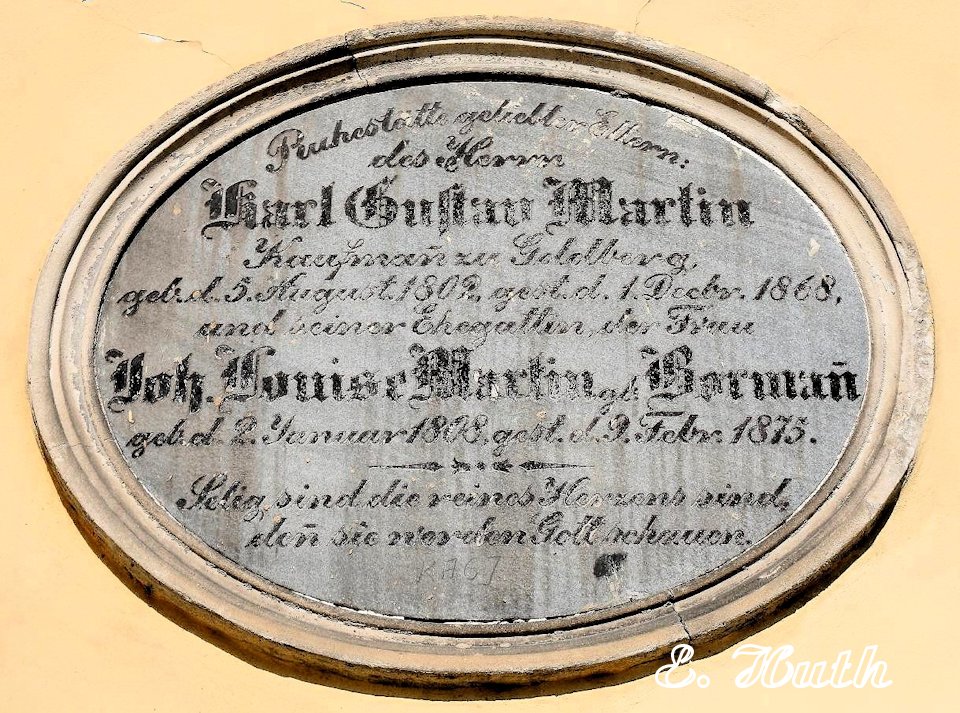 Ruhestätte geliebter Eltern:
des Herrn
Karl Gustav Martin
Kaufmañ zu Goldberg,
geb. d. 5. August 1802, gest. d. 1. Decbr. 1868,
und seiner Ehegattin, der Frau
Joh. Louise Martin gb. Bormañ
geb. d. 2. Januar 1808, gest. d. 9. Febr. 1875.
Selig sind die reines Herzens sind,
deñ sie werden Gott schauen.
E. Huth